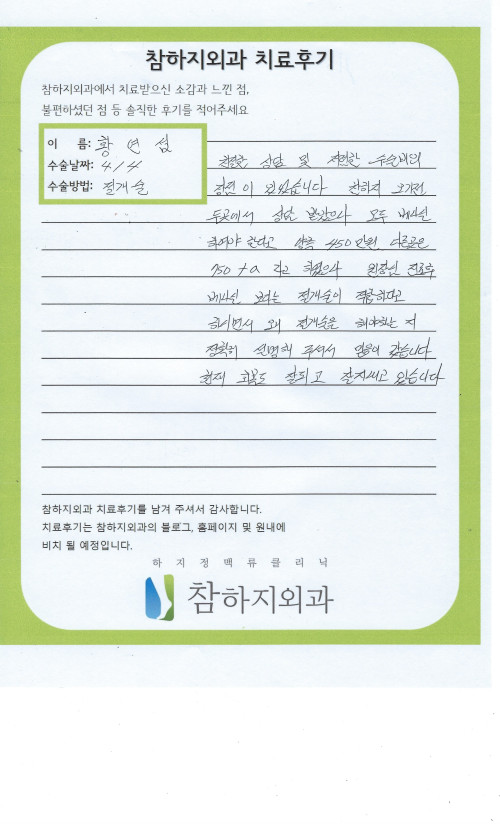 참하지외과 치료후기
참하지외과에서 치료받으신 소감과 느낀 점,
불편하셨던 점 등 솔직한 후기를 적어주세요
이 름: 황 연 섭
수술날짜: 4/4
수술방법: 절개술
친절한 상담 및 저렴한 수술비의
장점이 있었습니다 참하지 오기전
두곳에서 상담 받았으나 모두 베나실
하여야 한다고 양쪽 450만원, 다른곳은
750 +α 라고 하였으나 원장님 진료후
베나실 보다는 절개술이 적합하다고
하시면서 왜 절개술을 해야하는 지
정확히 설명해 주셔서 믿음이 갔습니다
현재 회복도 잘되고 잘지내고 있습니다
참하지외과 치료후기를 남겨 주셔서 감사합니다.
치료후기는 참하지외과의 블로그, 홈페이지 및 원내에
비치 될 예정입니다.
하지정맥류클리닉
참하지외과